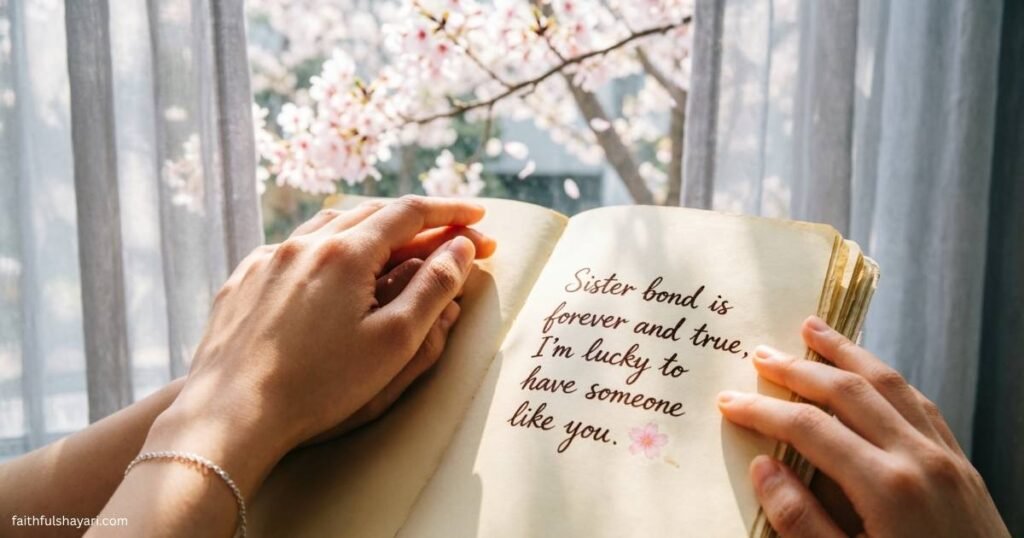 Sister bond is
forever and true,
I'm lucky to
have someone
like you.
faithfulshayari.com